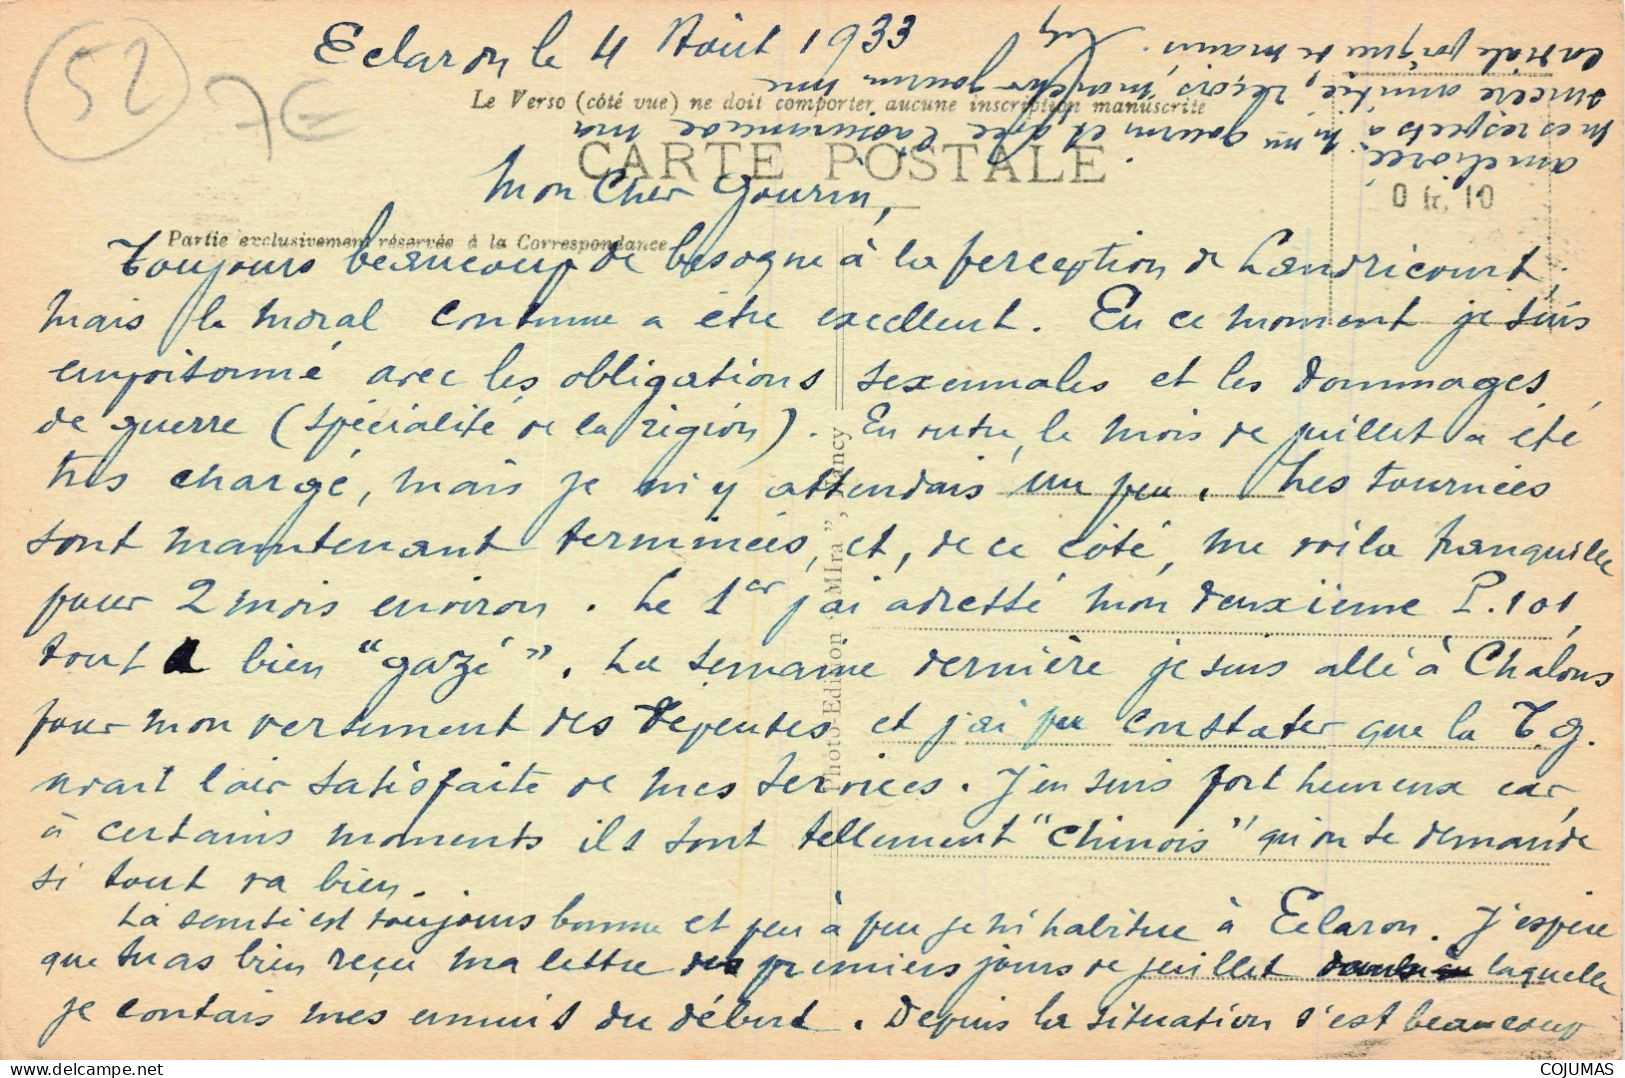 52
7€
Eclaron le 4 Août 1933
Le Verso (côté vue) ne doit comporter aucune inscription manuscrite
CARTE POSTALE
0 fr. 10
Mon Cher Gourin,
Partie exclusivement réservée à la Correspondance
Toujours beaucoup de besogne à la perception de Landricourt,
mais le moral continue a être excellent. En ce moment je suis
empoisonné avec les obligations sexennales et les dommages
de guerre (spécialité de la région). En outre, le mois de juillet a été
très chargé, mais je m'y attendais un peu. Les tournées
sont maintenant terminées, et, de ce côté, me voila tranquille
pour 2 mois environ. Le 1er j'ai adressé mon deuxième P.101,
tout bien "gazé". La semaine dernière je suis allé à Chalons
pour mon versement des Dépenses et j'ai pu constater que la T.G.
avait l'air satisfaite de mes services. J'en suis fort heureux car,
à certains moments ils sont tellement "chinois" qu'on se demande
si tout va bien.
La santé est toujours bonne et peu à peu je m'habitue à Eclaron. J'espère
que tu as bien reçu ma lettre des premiers jours de juillet laquelle
je contais mes ennuis du début. Depuis la situation s'est beaucoup
améliorée.
Mes respects à Mme Gourin et avec l'assurance de ma
sincère amitié, reçois, mon cher Gourin, une
cordiale poignée de main.
Photo-Edition "MIra", Nancy
COJUMAS